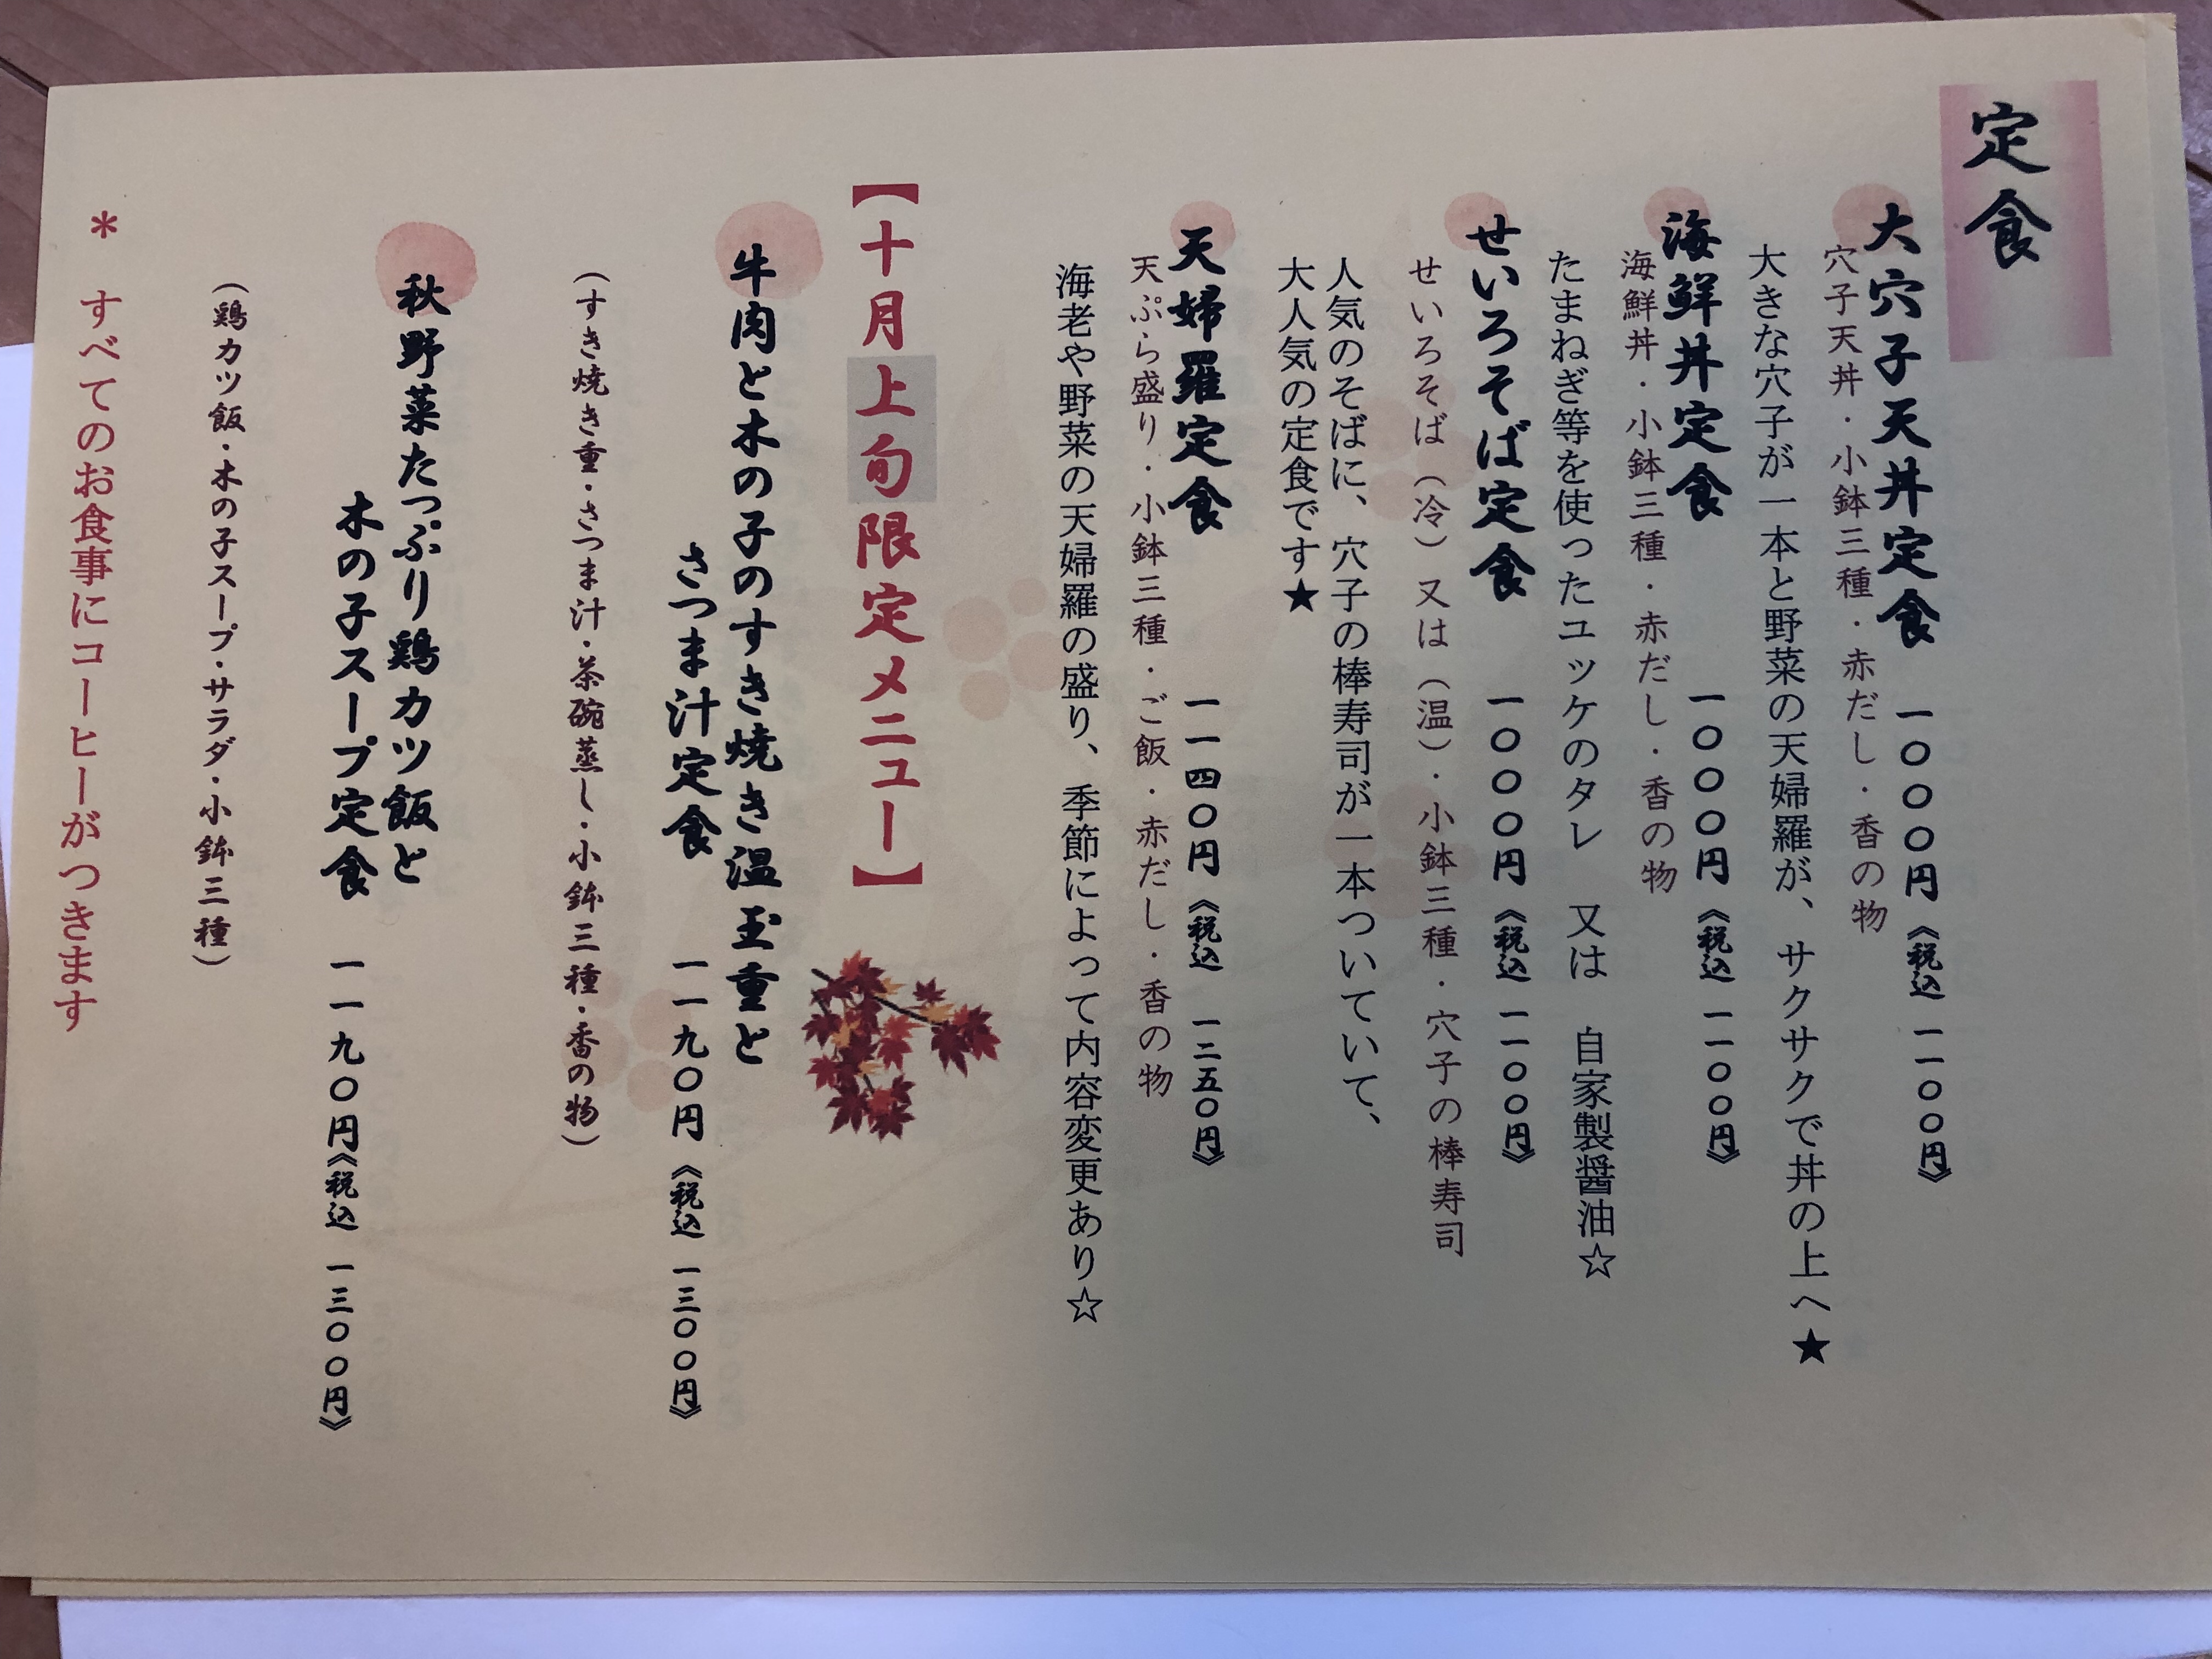 定食
大穴子天丼定食　一〇〇〇円《税込　一一〇〇円》
穴子天丼・小鉢三種・赤だし・香の物
大きな穴子が一本と野菜の天婦羅が、サクサクで丼の上へ★
海鮮丼定食　一〇〇〇円《税込　一一〇〇円》
海鮮丼・小鉢三種・赤だし・香の物
たまねぎ等を使ったユッケのタレ　又は　自家製醤油☆
せいろそば定食　一〇〇〇円《税込　一一〇〇円》
せいろそば（冷）又は（温）・小鉢三種・穴子の棒寿司
人気のそばに、穴子の棒寿司が一本ついていて、
大人気の定食です★
天婦羅定食　一一四〇円《税込　一二五〇円》
天ぷら盛り・小鉢三種・ご飯・赤だし・香の物
海老や野菜の天婦羅の盛り、季節によって内容変更あり☆
【十月上旬限定メニュー】
牛肉と木の子のすき焼き温玉重と
さつま汁定食　一一九〇円《税込　一三〇〇円》
（すき焼き重・さつま汁・茶碗蒸し・小鉢三種・香の物）
秋野菜たっぷり鶏カツ飯と
木の子スープ定食　一一九〇円《税込　一三〇〇円》
（鶏カツ飯・木の子スープ・サラダ・小鉢三種）
＊　すべてのお食事にコーヒーがつきます